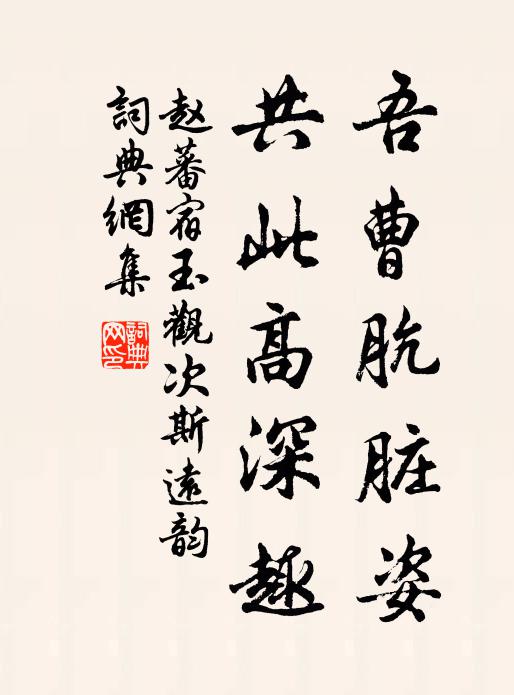 吾曹肮脏姿
共此高深趣
赵蕃宿玉觀次斯遠韵
詞典網集
詞典网印